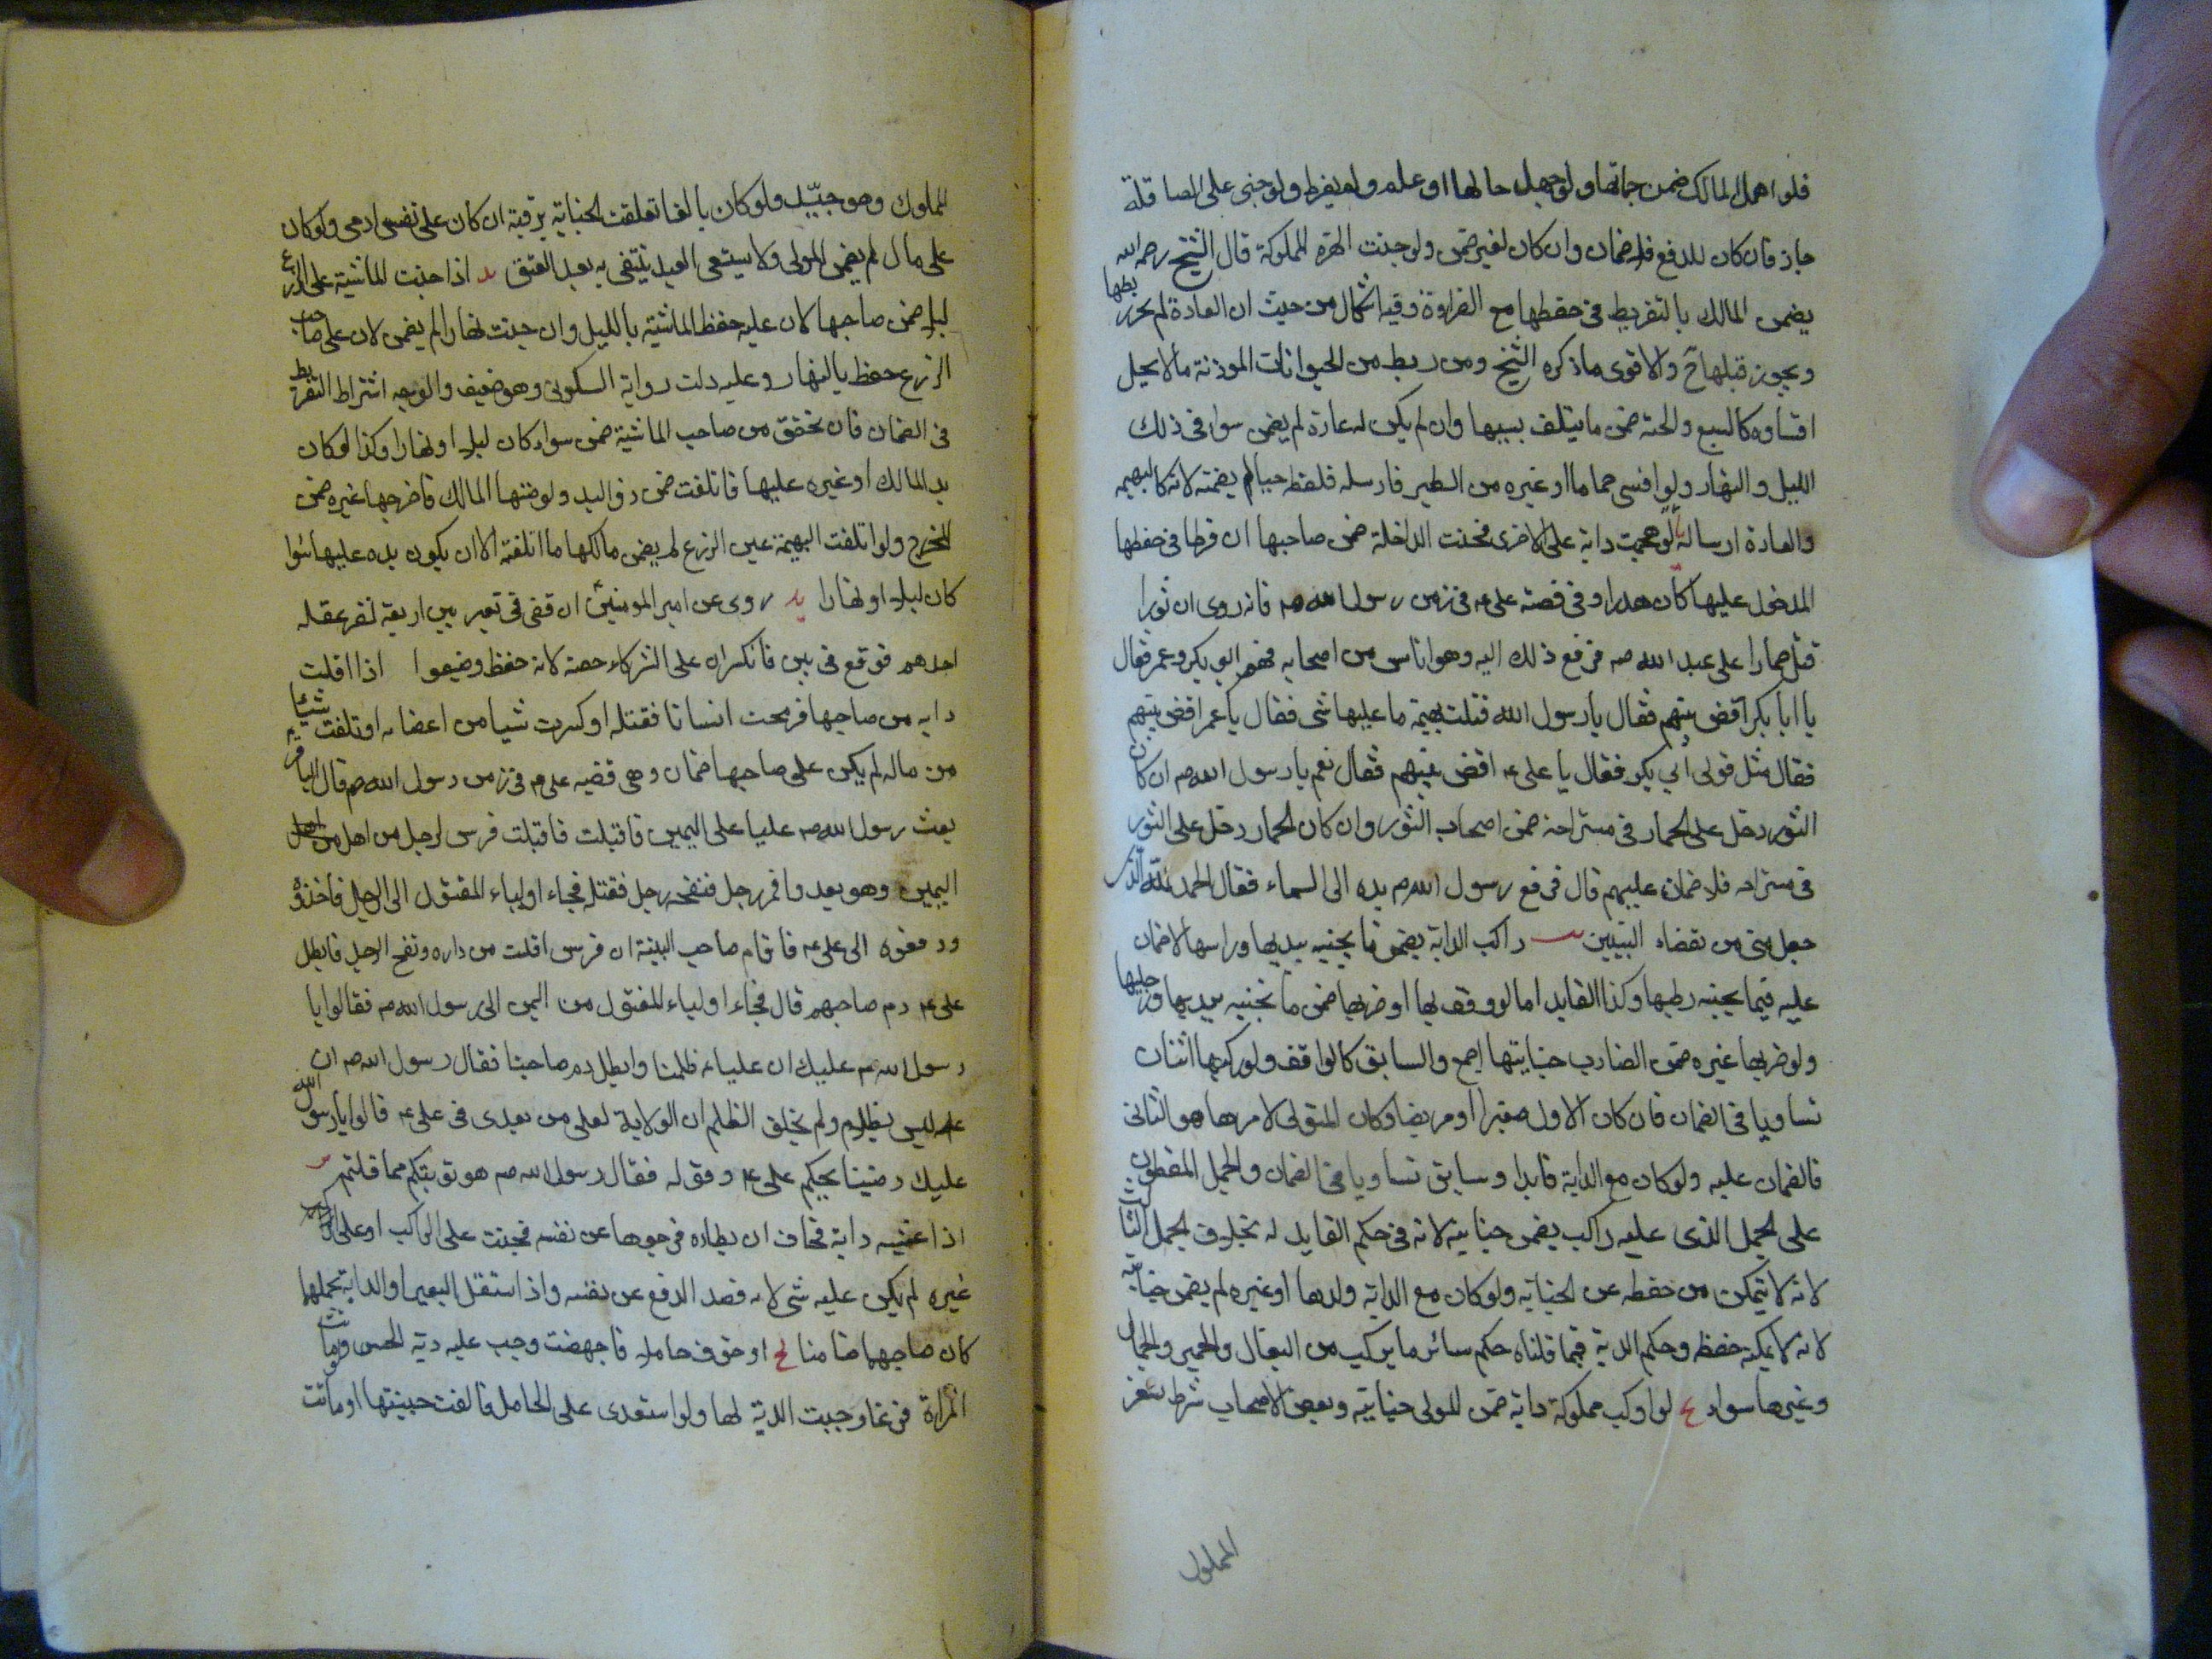 فلو اهمل المالك ضمن جنايتها ولو جهل حالها او علم ولم يفرط ولو جنى على الصاقلة
جاز فان كان للدفع فلا ضمان وان كان لغيره ضمن ولو جنت الهرة المملوكة قال الشيخ رحمه الله
يضمن المالك بالتفريط فى حفظها مع الضراوة وفيه اشكال من حيث ان العادة لم تجر بربطها
ويجوز قتلها ح والاقوى ما ذكره الشيخ ومن ربط من الحيوانات الموذنة مالا يحل
اقتناوه كالسبع والحية ضمن ما يتلف بسببها وان لم يكن له عادة لم يضمن سواء فى ذلك
الليل والنهار ولو افسى حماما او غيره من الطير فارسله فلقط حبا لم يضمنه لانه كالبهيمه
والعادة ارساله يا لو هجمت دابة على الاخرى فجنت الداخلة ضمن صاحبها ان فرط فى حفظها
المدخول عليها كان هدرا وفى قصة على ع فى زمن رسول الله ص فانه روى ان ثورا
قتل حمارا على عبد الله ص فرفع ذلك اليه وهو اناس من اصحابه فهم ابو بكر وعمر فقال
يا ابا بكر اقض بينهم فقال يا رسول الله قتلت بهيمة ما عليها شى فقال يا عمر اقض بينهم
فقال مثل قولى ابي بكر فقال يا على ع اقض بينهم فقال نعم يا رسول الله ص ان كان
الثور دخل على الحمار فى مستراحه ضمن اصحاب الثور وان كان الحمار دخل على الثور
فى مستراحه فلا ضمان عليهم قال فرفع رسول الله ص يده الى السماء فقال الحمد لله الذى
جعل منى من يقضاء النبيين راكب الدابة يضمن ما يجنيه بيديها وراسها لا ضمان
عليه فيما يجنيه رجليها وكذا القايد اما لو وقف بها او ضربها ضمن ما تجنيه بيديها ورجليها
ولو ضربها غيره ضمن الضارب جنايتها اجمع والسابق كالواقف ولو ركبها اثنان
تساويا فى الضمان فان كان الاول صغيرا او مريضا وكان المتولى لامرها هو الثانى
فالضمان عليه ولو كان مع الدابة قايد او سابق تساويا فى الضمان والجمل المقطور
على الجمل الذى عليه راكب يضمن جنايته لانه فى حكم القايد له بخلاف الجمل الثالث
لانه لا يتمكن من حفظه عن الجنايه ولو كان مع الدابة ولدها او غيره لم يضمن جنايته
لانه لا يمكنه حفظه وحكم الدية فيما قلناه حكم سائر ما يركب من البغال والحمير والجمال
وغيرها سواء ع لو اركب مملوكه دابة ضمن المولى جنايته وبعض الاصحاب شرط صغر
المملوك
المملوك وهو جيد ولو كان بالغا تعلقت الجنايه برقبته ان كان على نفس ادمى ولو كان
على مال لم يضمن المولى ولا يستسعى العبد بل يتبع به بعد العتق يد اذا جنت الماشية على الزرع
ليلا ضمن صاحبها لان عليه حفظ الماشية بالليل وان جنت نهارا لم يضمن لان على صاحب
الزرع حفظه بالنهار وعليه دلت رواية السكونى وهو ضعيف والوجه اشتراط التفريط
فى الضمان فان تحقق من صاحب الماشية ضمن سواء كان ليلا او نهارا وكذا لو كان
يد المالك او غيره عليها فاتلفت ضمن ذو اليد ولو منها المالك فاخرجها غيره ضمن
المخرج ولو اتلفت البهيمة عين الزرع لم يضمن مالكها ما اتلفته الا ان يكون يده عليها سوا
كان ليلا او نهارا يه روى عن امير المومنين ان قضى فى بعير بين اربعة نفر عقله
احدهم فوقع فى بير فانكسر ان على الشركاء حصة لانه حفظ وضيعوا اذا افلت
دابه من صاحبها فرمحت انسانا فقتله او كسرت شيا من اعضاءه او تلفت شيئا
من ماله لم يكن على صاحبها ضمان وهى قضيه على ع فى زمن رسول الله ص قال الباقر
بعث رسول الله ص عليا على اليمن فاقبلت فاقبلت فرس لرجل من اهل من اهل
اليمن وهو يعد وافمر رجل فنفحه رجل فقتله فجاء اولياء المقتول الى الرجل فاخذوه
ودفعوه الى على ع فاقام صاحب البينة ان فرس افلت من داره ونفح الرجل فابطل
على ع دم صاحبهم قال فجاء اولياء المقتول من اليمن الى رسول الله ص فقالوا يا
رسول الله ص عليك ان عليا ع ظلمنا وابطل دم صاحبنا فقال رسول الله ص ان
على ليس بظلام ولم يخلق الظلم ان الولاية لعلى من بعدى فى على ع قالوا يا رسول الله
عليك رضينا بحكم على ع وقوله فقال رسول الله ص هو توبتكم مما قلتم
اذا غشيه دابة فخاف ان يطاه فزجرها عن نفسه فجنت على الراكب او على
غيره لم يكن عليه شى لانه قصد الدفع عن نفسه واذا استقل البعير او الدابة بحملها
كان صاحبها ضامنا لح او خوف حامله فاجهضت وجب عليه دية الجنين ولو ماتت
المراة فزعا وجبت الدية لها ولو استعدى على الحامل فالقت جنينها او ماتت